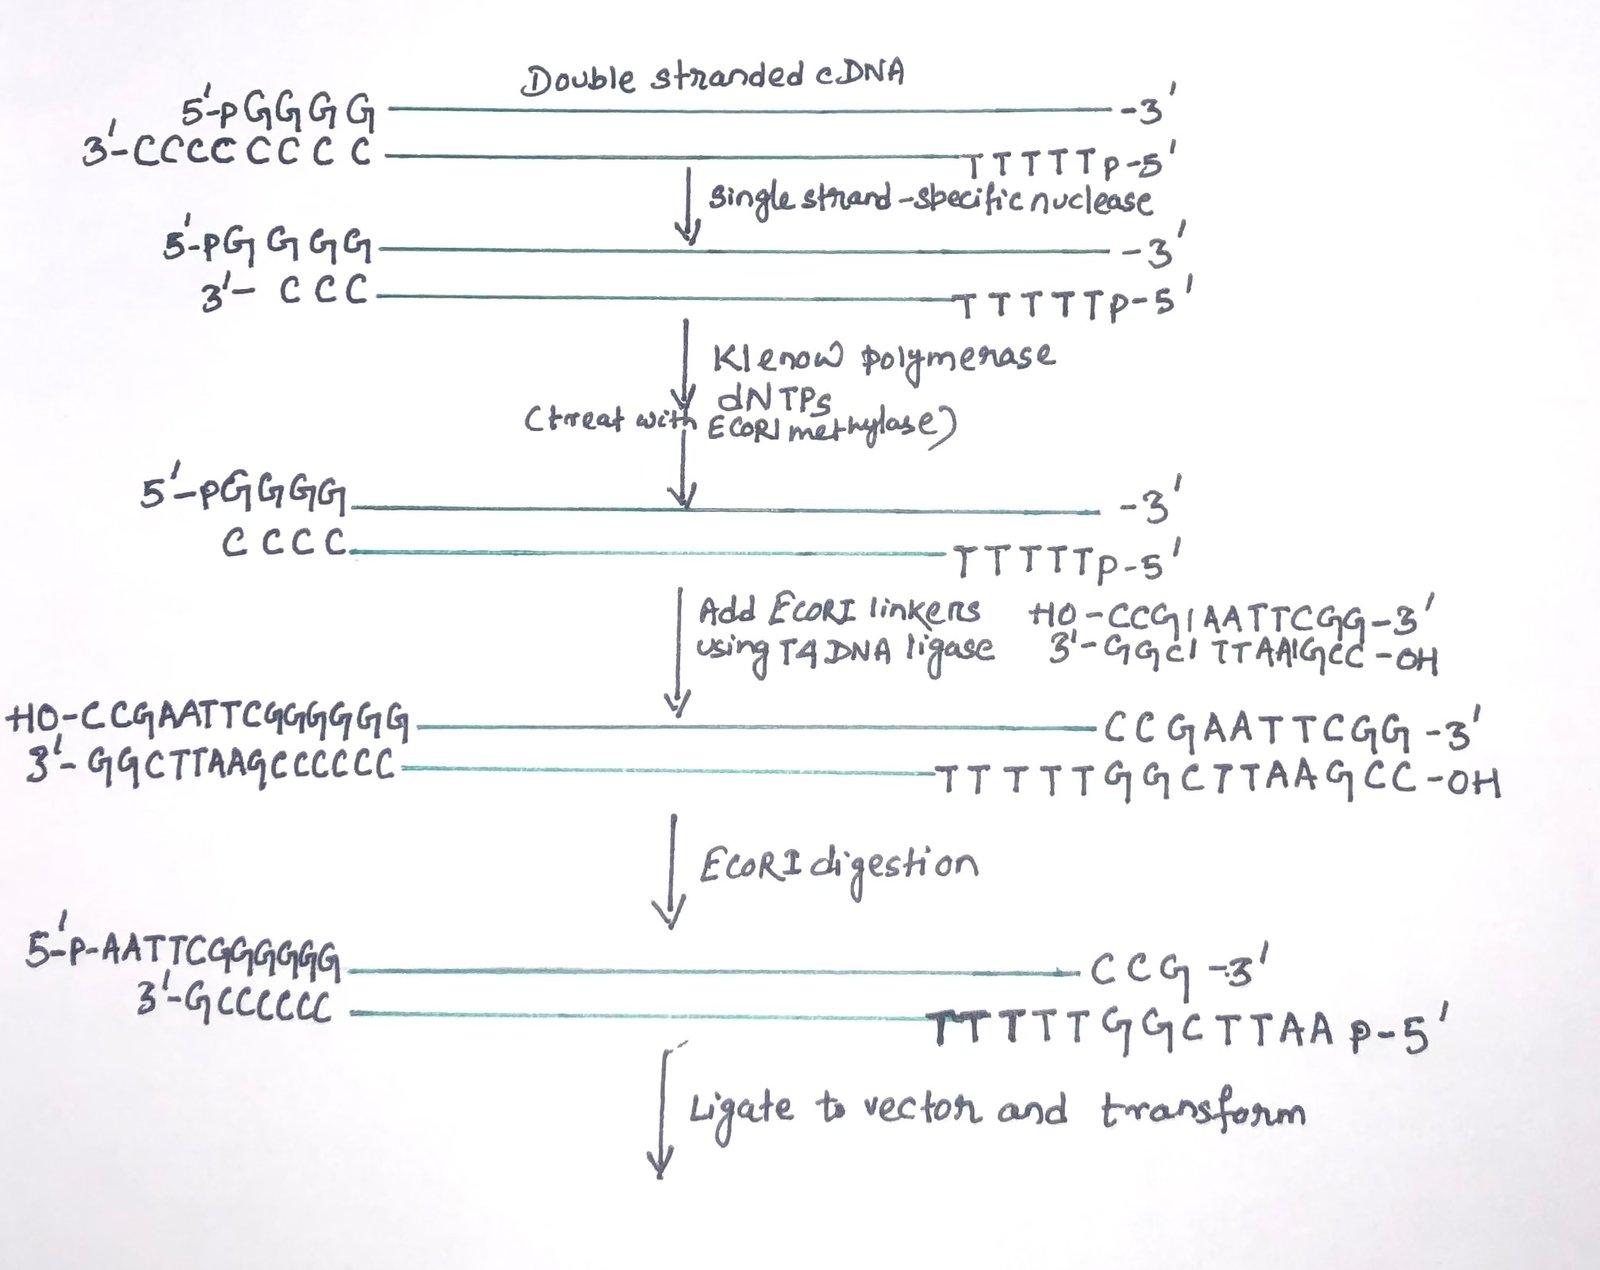 Double stranded cDNA
5'-pGGGG -3'
3'-CCCCCCCC TTTTTp-5'
single strand-specific nuclease
5'-pGGGG -3'
3'- CCC TTTTTp-5'
Klenow polymerase
dNTPs
(treat with EcoRI methylase)
5'-pGGGG -3'
CCCC TTTTTp-5'
Add EcoRI linkers HO-CCG|AATTCGG-3'
using T4 DNA ligase 3'-GGC| TTAA|GCC-OH
HO-CCGAATTCGGGGGG CCGAATTCGG-3'
3'-GGCTTAAGCCCCCC TTTTTGGCTTAAGCC-OH
EcoRI digestion
5'-P-AATTCGGGGGG CCG-3'
3'-GCCCCCC TTTTTGGCTTAA p-5'
Ligate to vector and transform